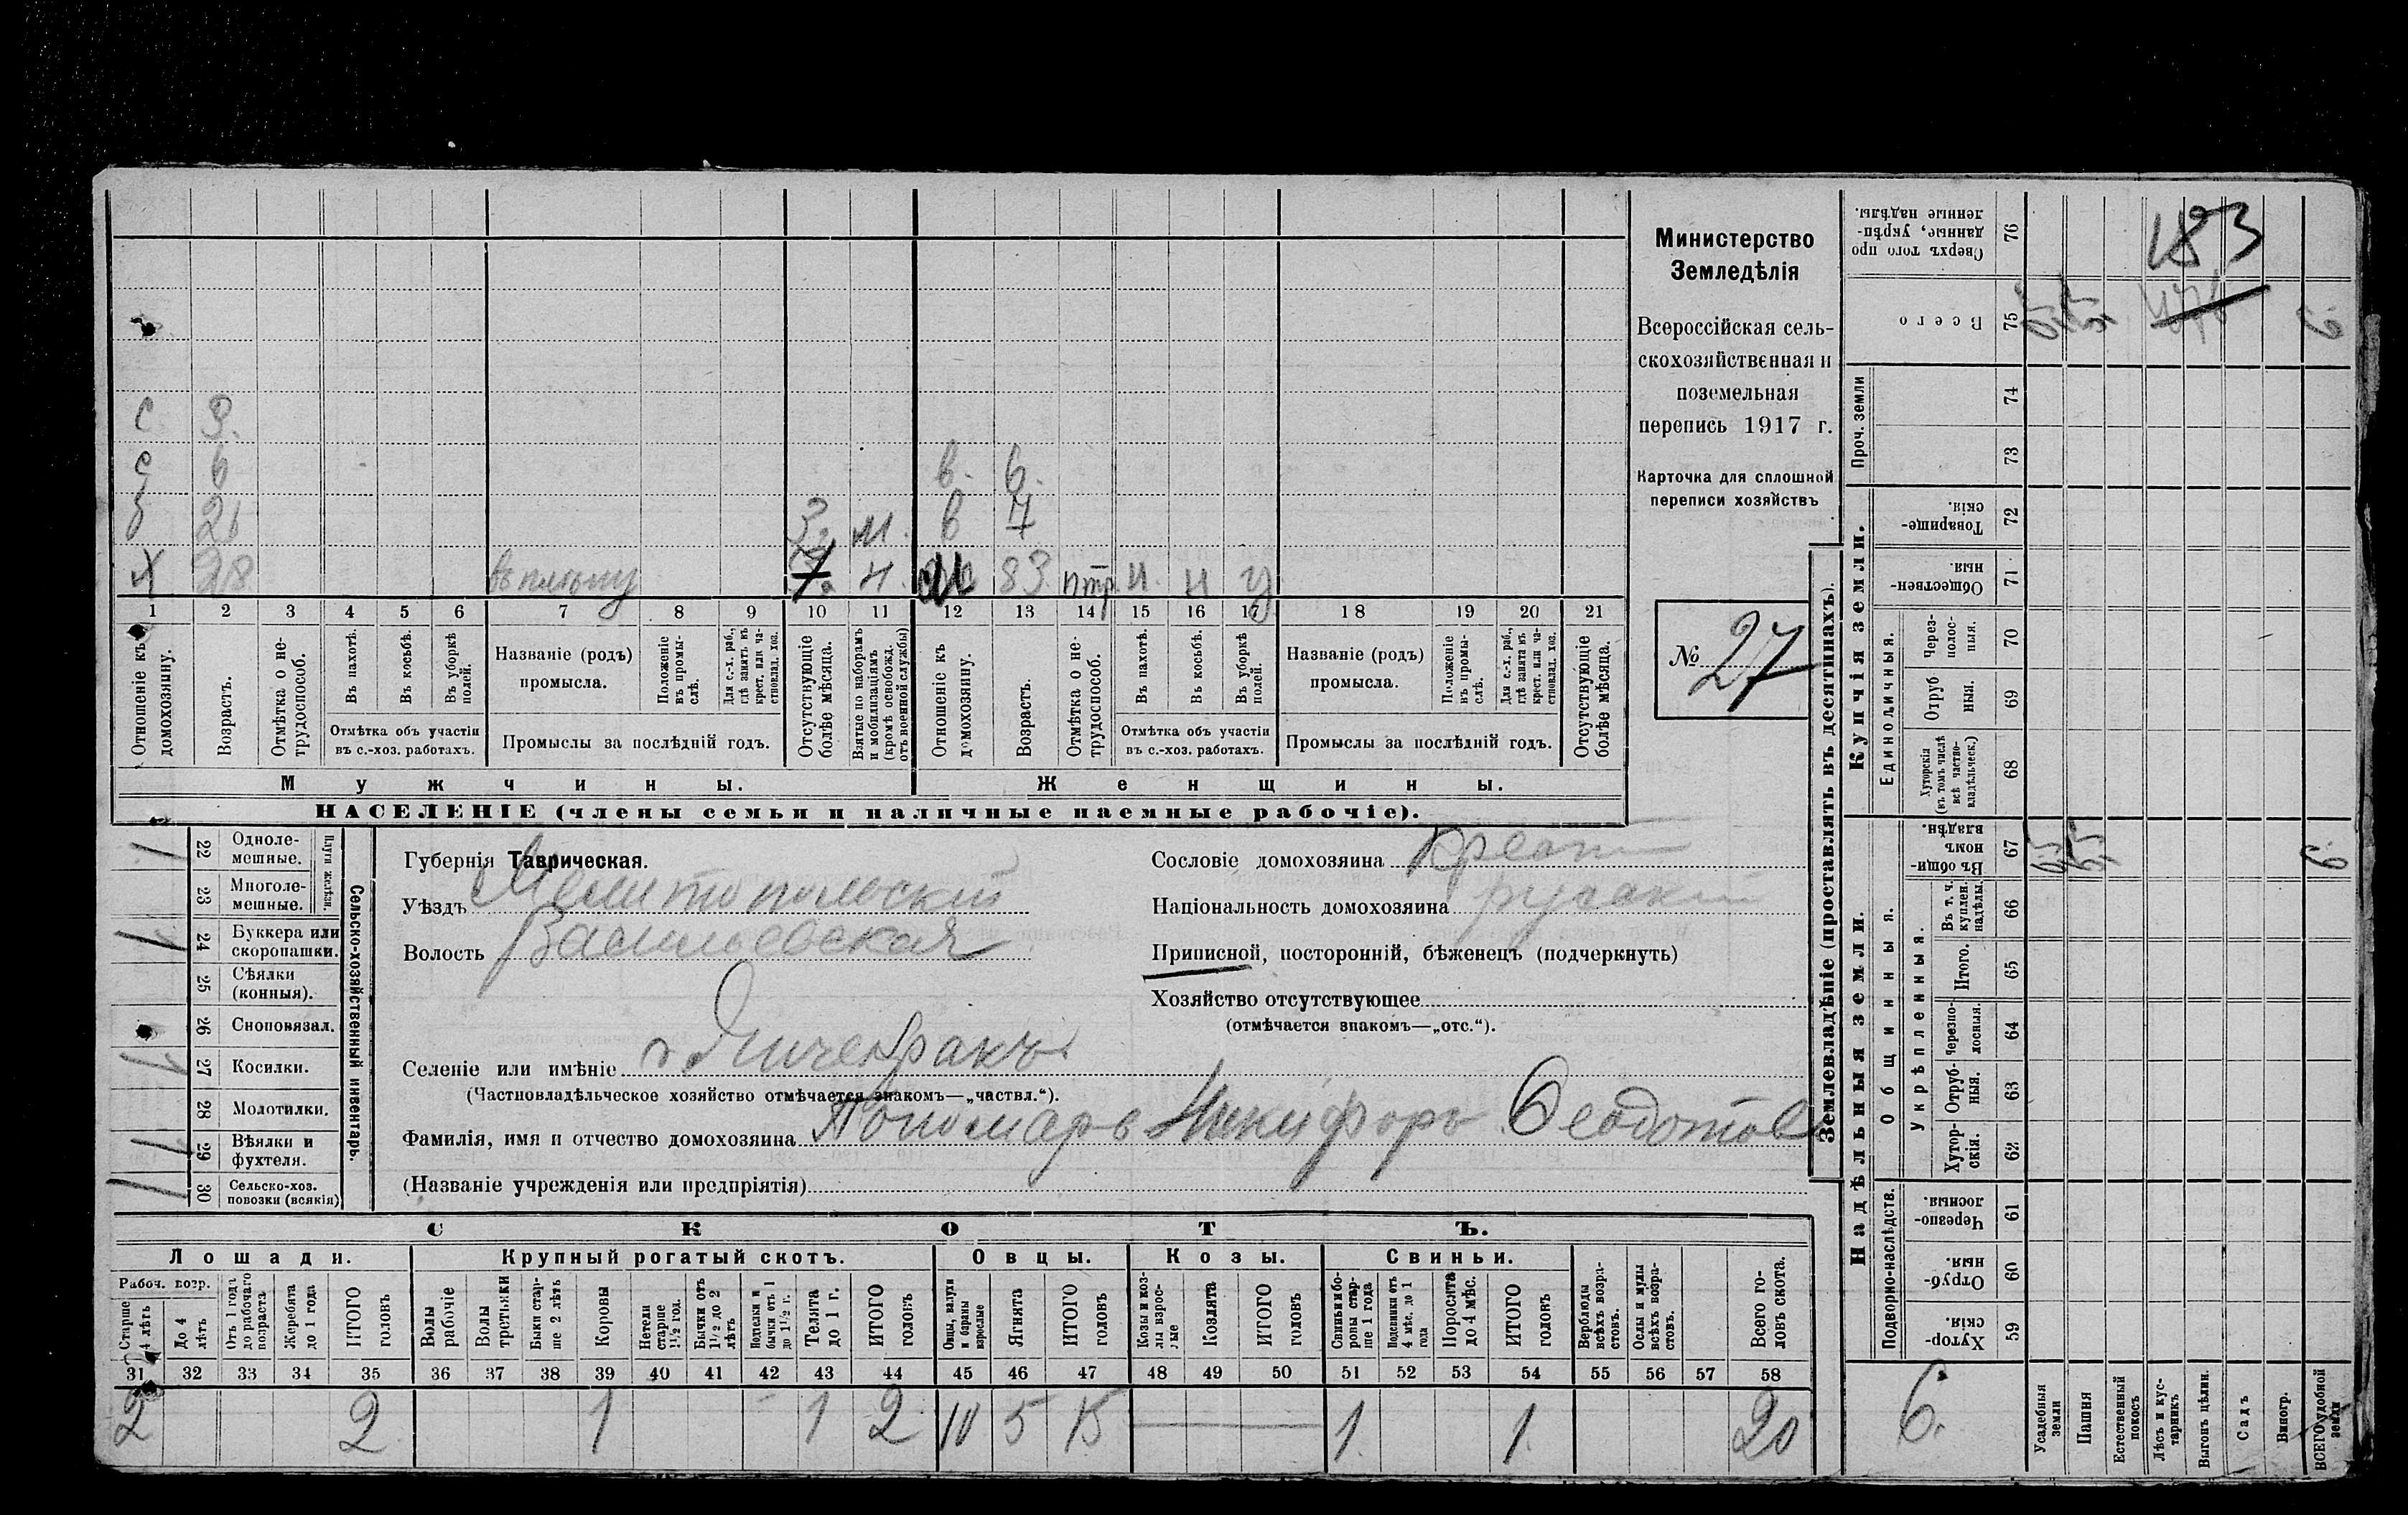 Министерство
Земледѣлія
Всероссійская сель-
скохозяйственная и
поземельная
перепись 1917 г.
Карточка для сплошной
переписи хозяйствъ
№ 27
с 3.
с 6 в. 6.
б 21 3. м. в 7
х 28 въ плѣну н. 83 н н у
1 2 3 4 5 6 7 8 9 10 11 12 13 14 15 16 17 18 19 20 21
Отношеніе къ домохозяину.
Возрастъ.
Отмѣтка о не-трудоспособ.
Въ пахотѣ.
Въ косьбѣ.
Въ уборкѣ полей.
Отмѣтка объ участіи въ с.-хоз. работахъ.
Названіе (родъ) промысла.
Положеніе въ промы-слѣ.
Для с.-х. раб., гдѣ занятъ въ крест. или ча-стновлад. хоз.
Промыслы за послѣдній годъ.
Отсутствующіе болѣе мѣсяца.
Взятые по наборамъ и мобилизаціямъ (кромѣ освобожд. отъ военной службы)
Отношеніе къ домохозяину.
Возрастъ.
Отмѣтка о не-трудоспособ.
Въ пахотѣ.
Въ косьбѣ.
Въ уборкѣ полей.
Отмѣтка объ участіи въ с.-хоз. работахъ.
Названіе (родъ) промысла.
Положеніе въ промы-слѣ.
Для с.-х. раб., гдѣ занята въ крест. или ча-стновлад. хоз.
Промыслы за послѣдній годъ.
Отсутствующіе болѣе мѣсяца.
Мужчины.
Женщины.
НАСЕЛЕНІЕ (члены семьи и наличные наемные рабочіе).
Сельско-хозяйственный инвентарь.
Плуги желѣзн.
22 Одноле-мешные.
23 Многоле-мешные.
24 Буккера или скоропашки.
25 Сѣялки (конныя).
26 Сноповязал.
27 Косилки.
28 Молотилки.
29 Вѣялки и фухтеля.
30 Сельско-хоз. повозки (всякія)
Губернія Таврическая.
Уѣздъ Мелитопольскій
Волость Васильевская
Селеніе или имѣніе с Янчекракъ
(Частновладѣльческое хозяйство отмѣчается знакомъ—„частвл.“).
Фамилія, имя и отчество домохозяина Пономарь Никифоръ Ѳеодотов
(Названіе учрежденія или предпріятія)
Сословіе домохозяина крест
Національность домохозяина русскій
Приписной, посторонній, бѣженецъ (подчеркнуть)
Хозяйство отсутствующее
(отмѣчается знакомъ—„отс.“).
СКОТЪ.
Лошади. Крупный рогатый скотъ. Овцы. Козы. Свиньи.
Рабоч. возр.
Старше 4 лѣтъ
До 4 лѣтъ
Отъ 1 года до рабочаго возраста
Жеребята до 1 года
ИТОГО головъ
Волы рабочіе
Волы третьяки
Быки стар-ше 2 лѣтъ
Коровы
Нетели старше 1½ год.
Бычки отъ 1½ до 2 лѣтъ
Подтелки и бычки отъ 1 до 1½ г.
Телята до 1 г.
ИТОГО головъ
Овцы, валухи и бараны взрослые
Ягнята
ИТОГО головъ
Козы и коз-лы взрос-лые
Козлята
ИТОГО головъ
Свиньи и бо-ровы стар-ше 1 года
Подсвинки отъ 4 мѣс. до 1 года
Поросята до 4 мѣс.
ИТОГО головъ
Верблюды всѣхъ возра-стовъ.
Ослы и мулы всѣхъ возра-стовъ.
Всего го-ловъ скота.
31 32 33 34 35 36 37 38 39 40 41 42 43 44 45 46 47 48 49 50 51 52 53 54 55 56 57 58
2 2 1 1 2 10 5 15 1. 1. 20
Землевладѣніе (проставлять въ десятинахъ).
Надѣльныя земли.
Купчія земли.
Подворно-наслѣдств.
Общинныя.
Укрѣпленныя.
Единоличныя.
Проч. земли
Хутор-скія. 59
Отруб-ныя. 60
Черезпо-лосныя. 61
Хутор-скія. 62
Отруб-ныя. 63
Черезпо-лосныя. 64
Итого. 65
Въ т. ч. куплен. надѣлы. 66
Въ общин-номъ владѣн. 67
Хуторскія (въ томъ числѣ всѣ частно-владѣльческ.) 68
Отрубныя. 69
Через-полос-ныя. 70
Обществен-ныя. 71
Товарище-скія. 72
73
74
Всего 75
Сверхъ того про-данные, укрѣп-ленные надѣлы. 76
183
6.
6.
6.
Усадебныя земли
Пашня
Естественный покосъ
Лѣсъ и кус-тарникъ
Выгонъ цѣлин.
Садъ
Виногр.
ВСЕГО удобной земли